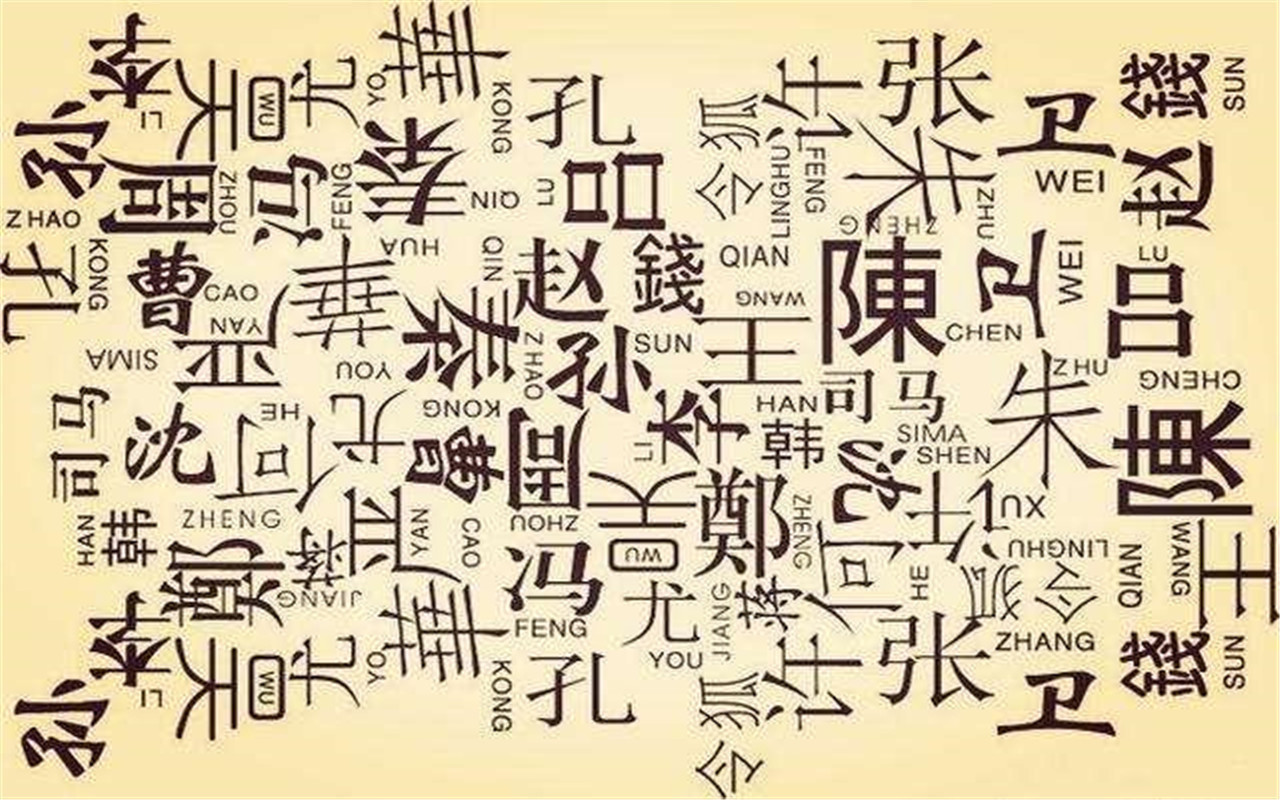 李
LI
吴
WU
尤
YO
華
KONG
孔
狐
许
张
卫
WEI
錢
SUN
孙
ZHAO
周
ZHOU
冯
FENG
秦
QIN
LU
吕
令
LINGHU
FENG
朱
ZHENG
ZHU
赵
孔
KONG
曹
CAO
華
HUA
QIN
赵
錢
QIAN
WANG
陳
CHEN
卫
WEI
LU
吕
SIMA
YAN
严
YOU
秦
ZHAO
孙
SUN
王
ZHU
朱
CHENG
司马
沈
HE
何
尤
KONG
曹
周
LI
李
HAN
韩
司马
SIMA
沈
SHEN
陳
HAN
韩
ZHENG
鄭
蒋
JIANG
严
YAN
CAO
ZHOU
吴
WU
鄭
ZHENG
何
HE
许
XU
LINGHU
令狐
QIAN
WANG
王
冯
FENG
尤
YOU
JIANG
蒋
张
ZHANG
卫
錢
SUN
孙
李
LI
吴
WU
尤
YO
華
KONG
孔
令狐
许